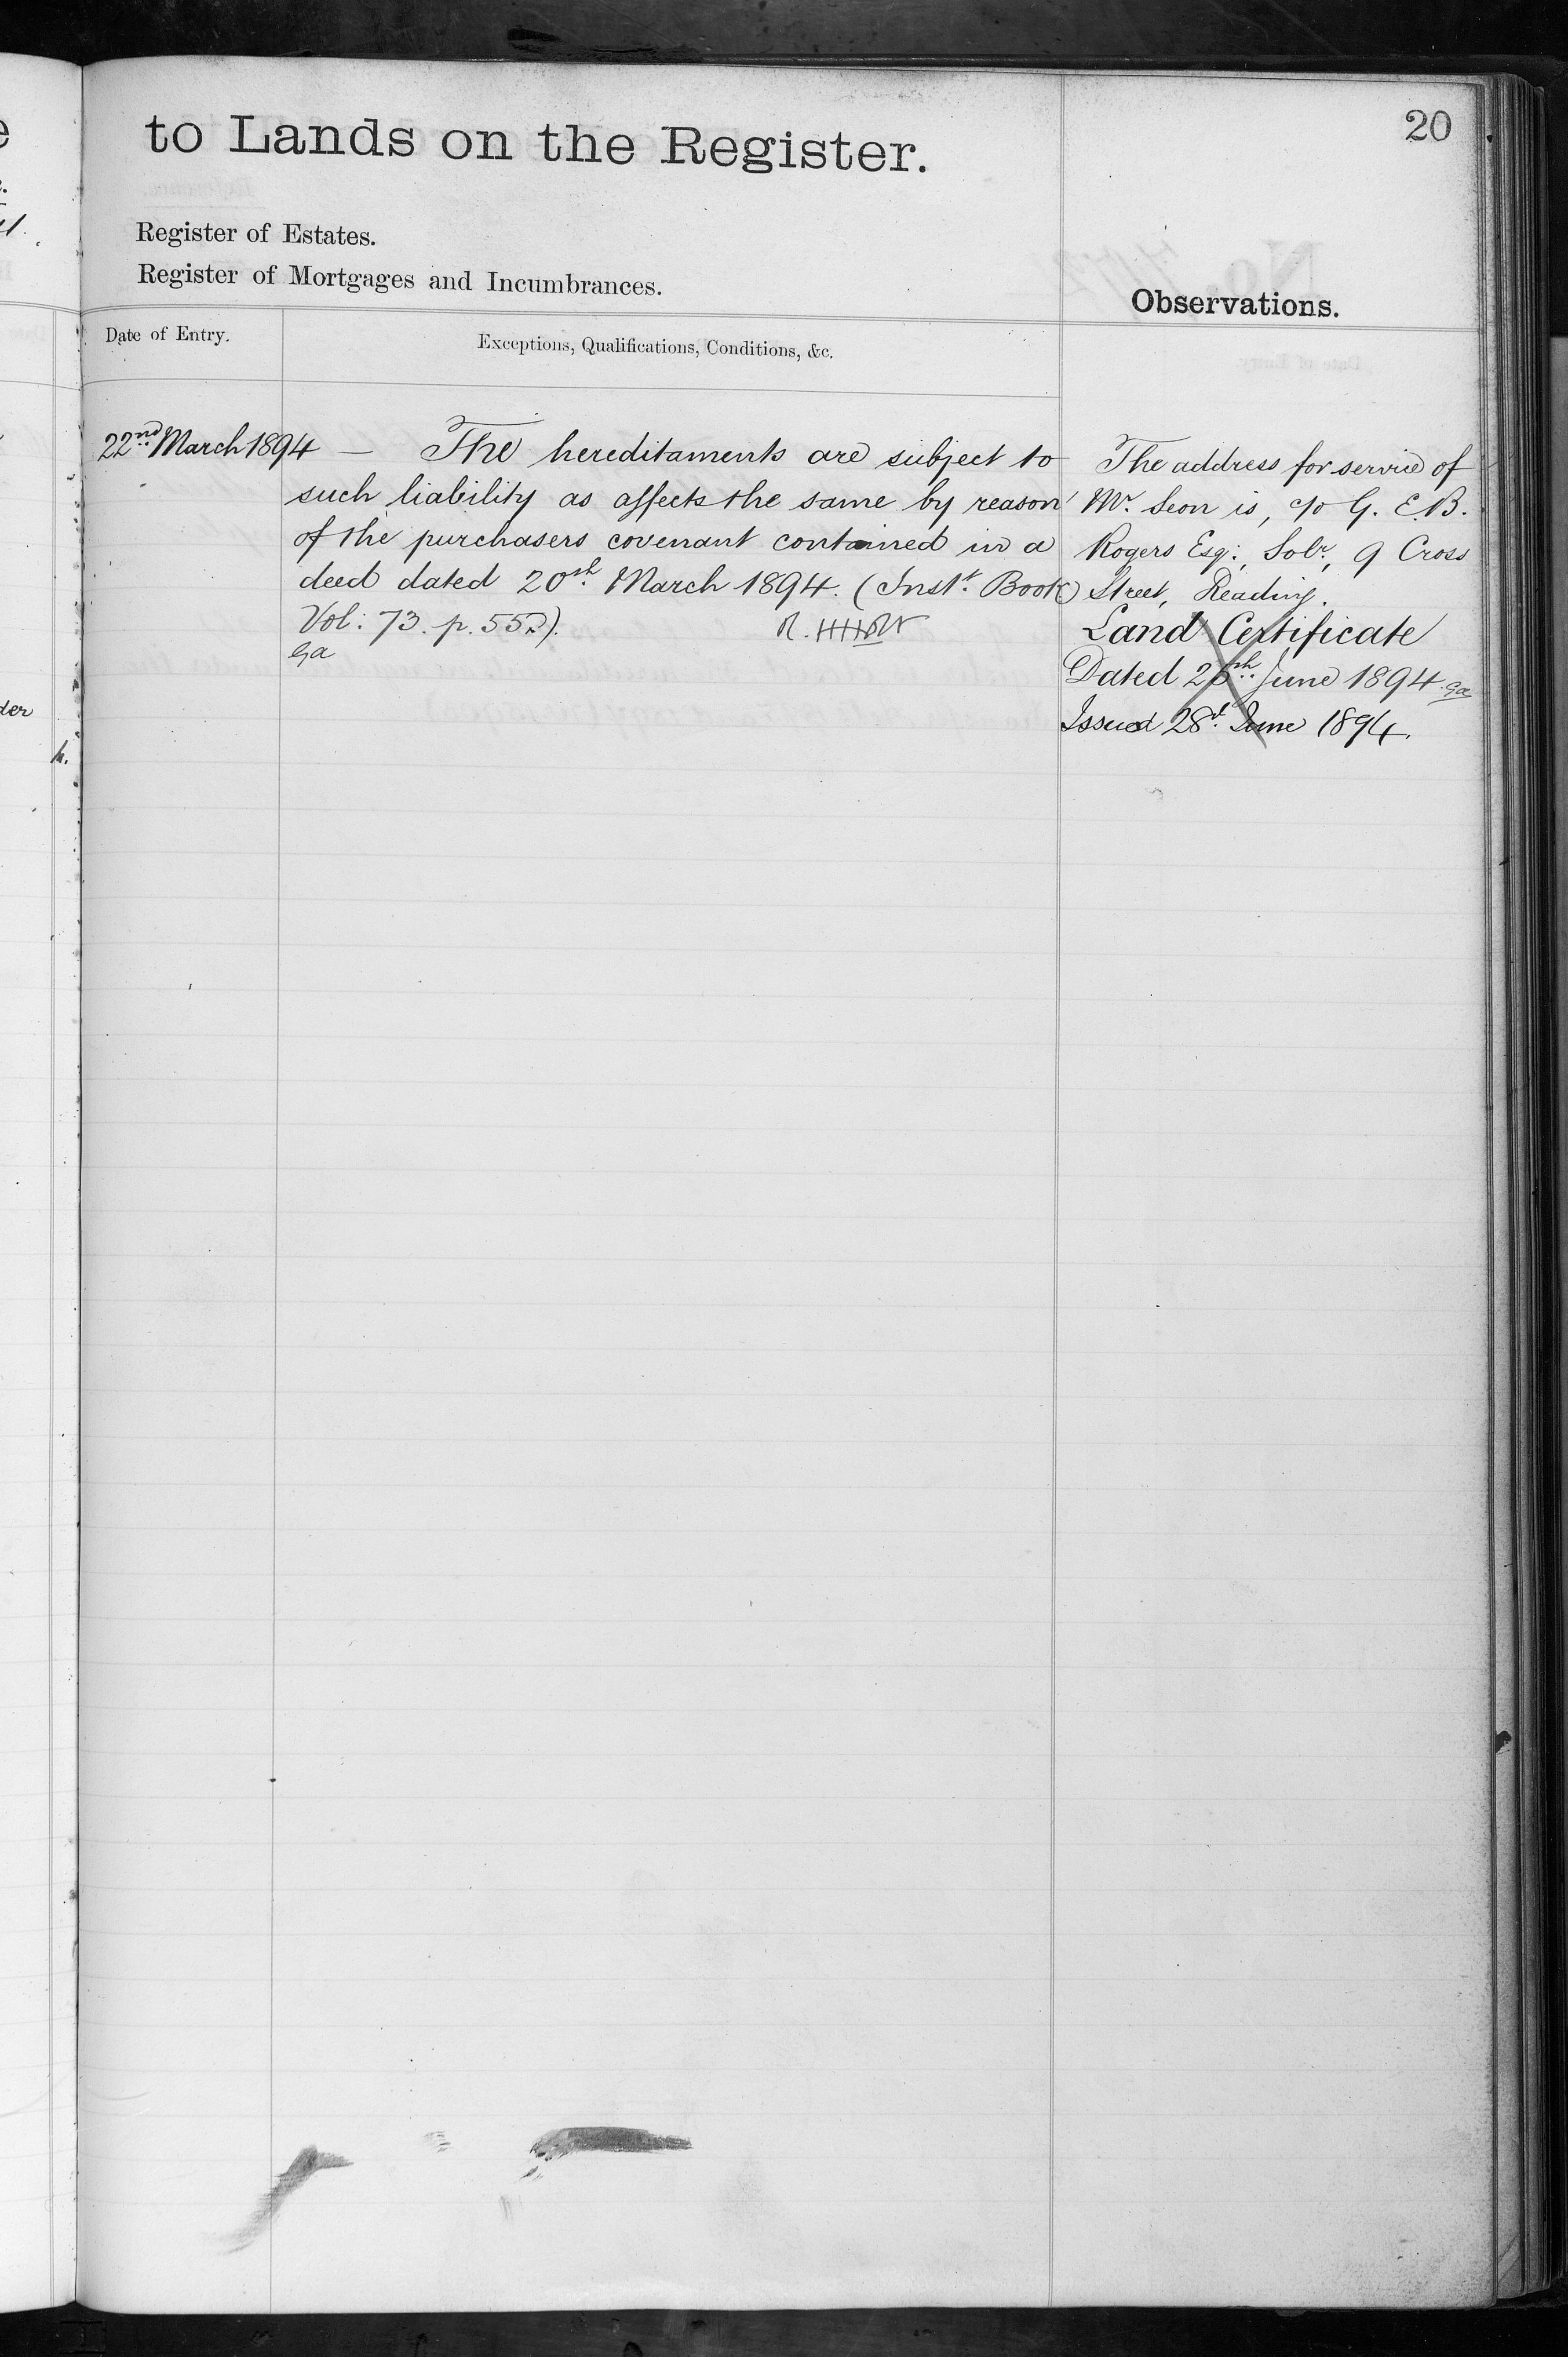 to Lands on the Register.
20
Register of Estates.
Register of Mortgages and Incumbrances.
Observations.
Date of Entry.
Exceptions, Qualifications, Conditions, &c.
22nd March 1894 — The hereditaments are subject to
such liability as affects the same by reason
of the purchasers covenant contained in a
deed dated 20th March 1894. (Instt. Book
Vol: 73. p. 552).
Ga
The address for service of
Mr. Seon is, c/o G. E. B.
Rogers Esq:, Solr, 9 Cross
Street, Reading.
Land Certificate
Dated 26th June 1894 Ga
Issued 28th June 1894.
der